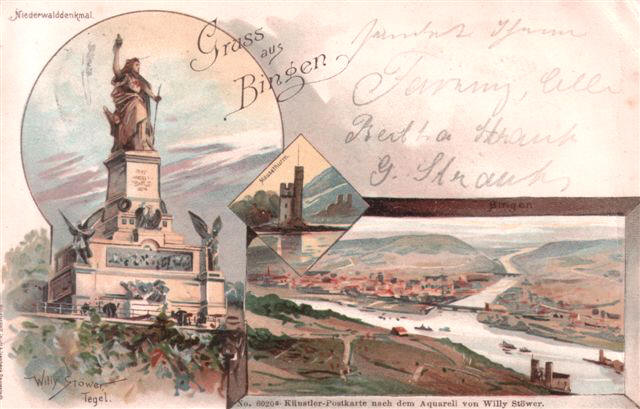 Niederwalddenkmal.
Gruss
aus
Bingen
sendet Ihnen
Bertha Strauß
G. Strauß
Mäusethurm.
Bingen
Willy Stöwer
Tegel.
Künstler-Postkarte nach dem Aquarell von Willy Stöwer.